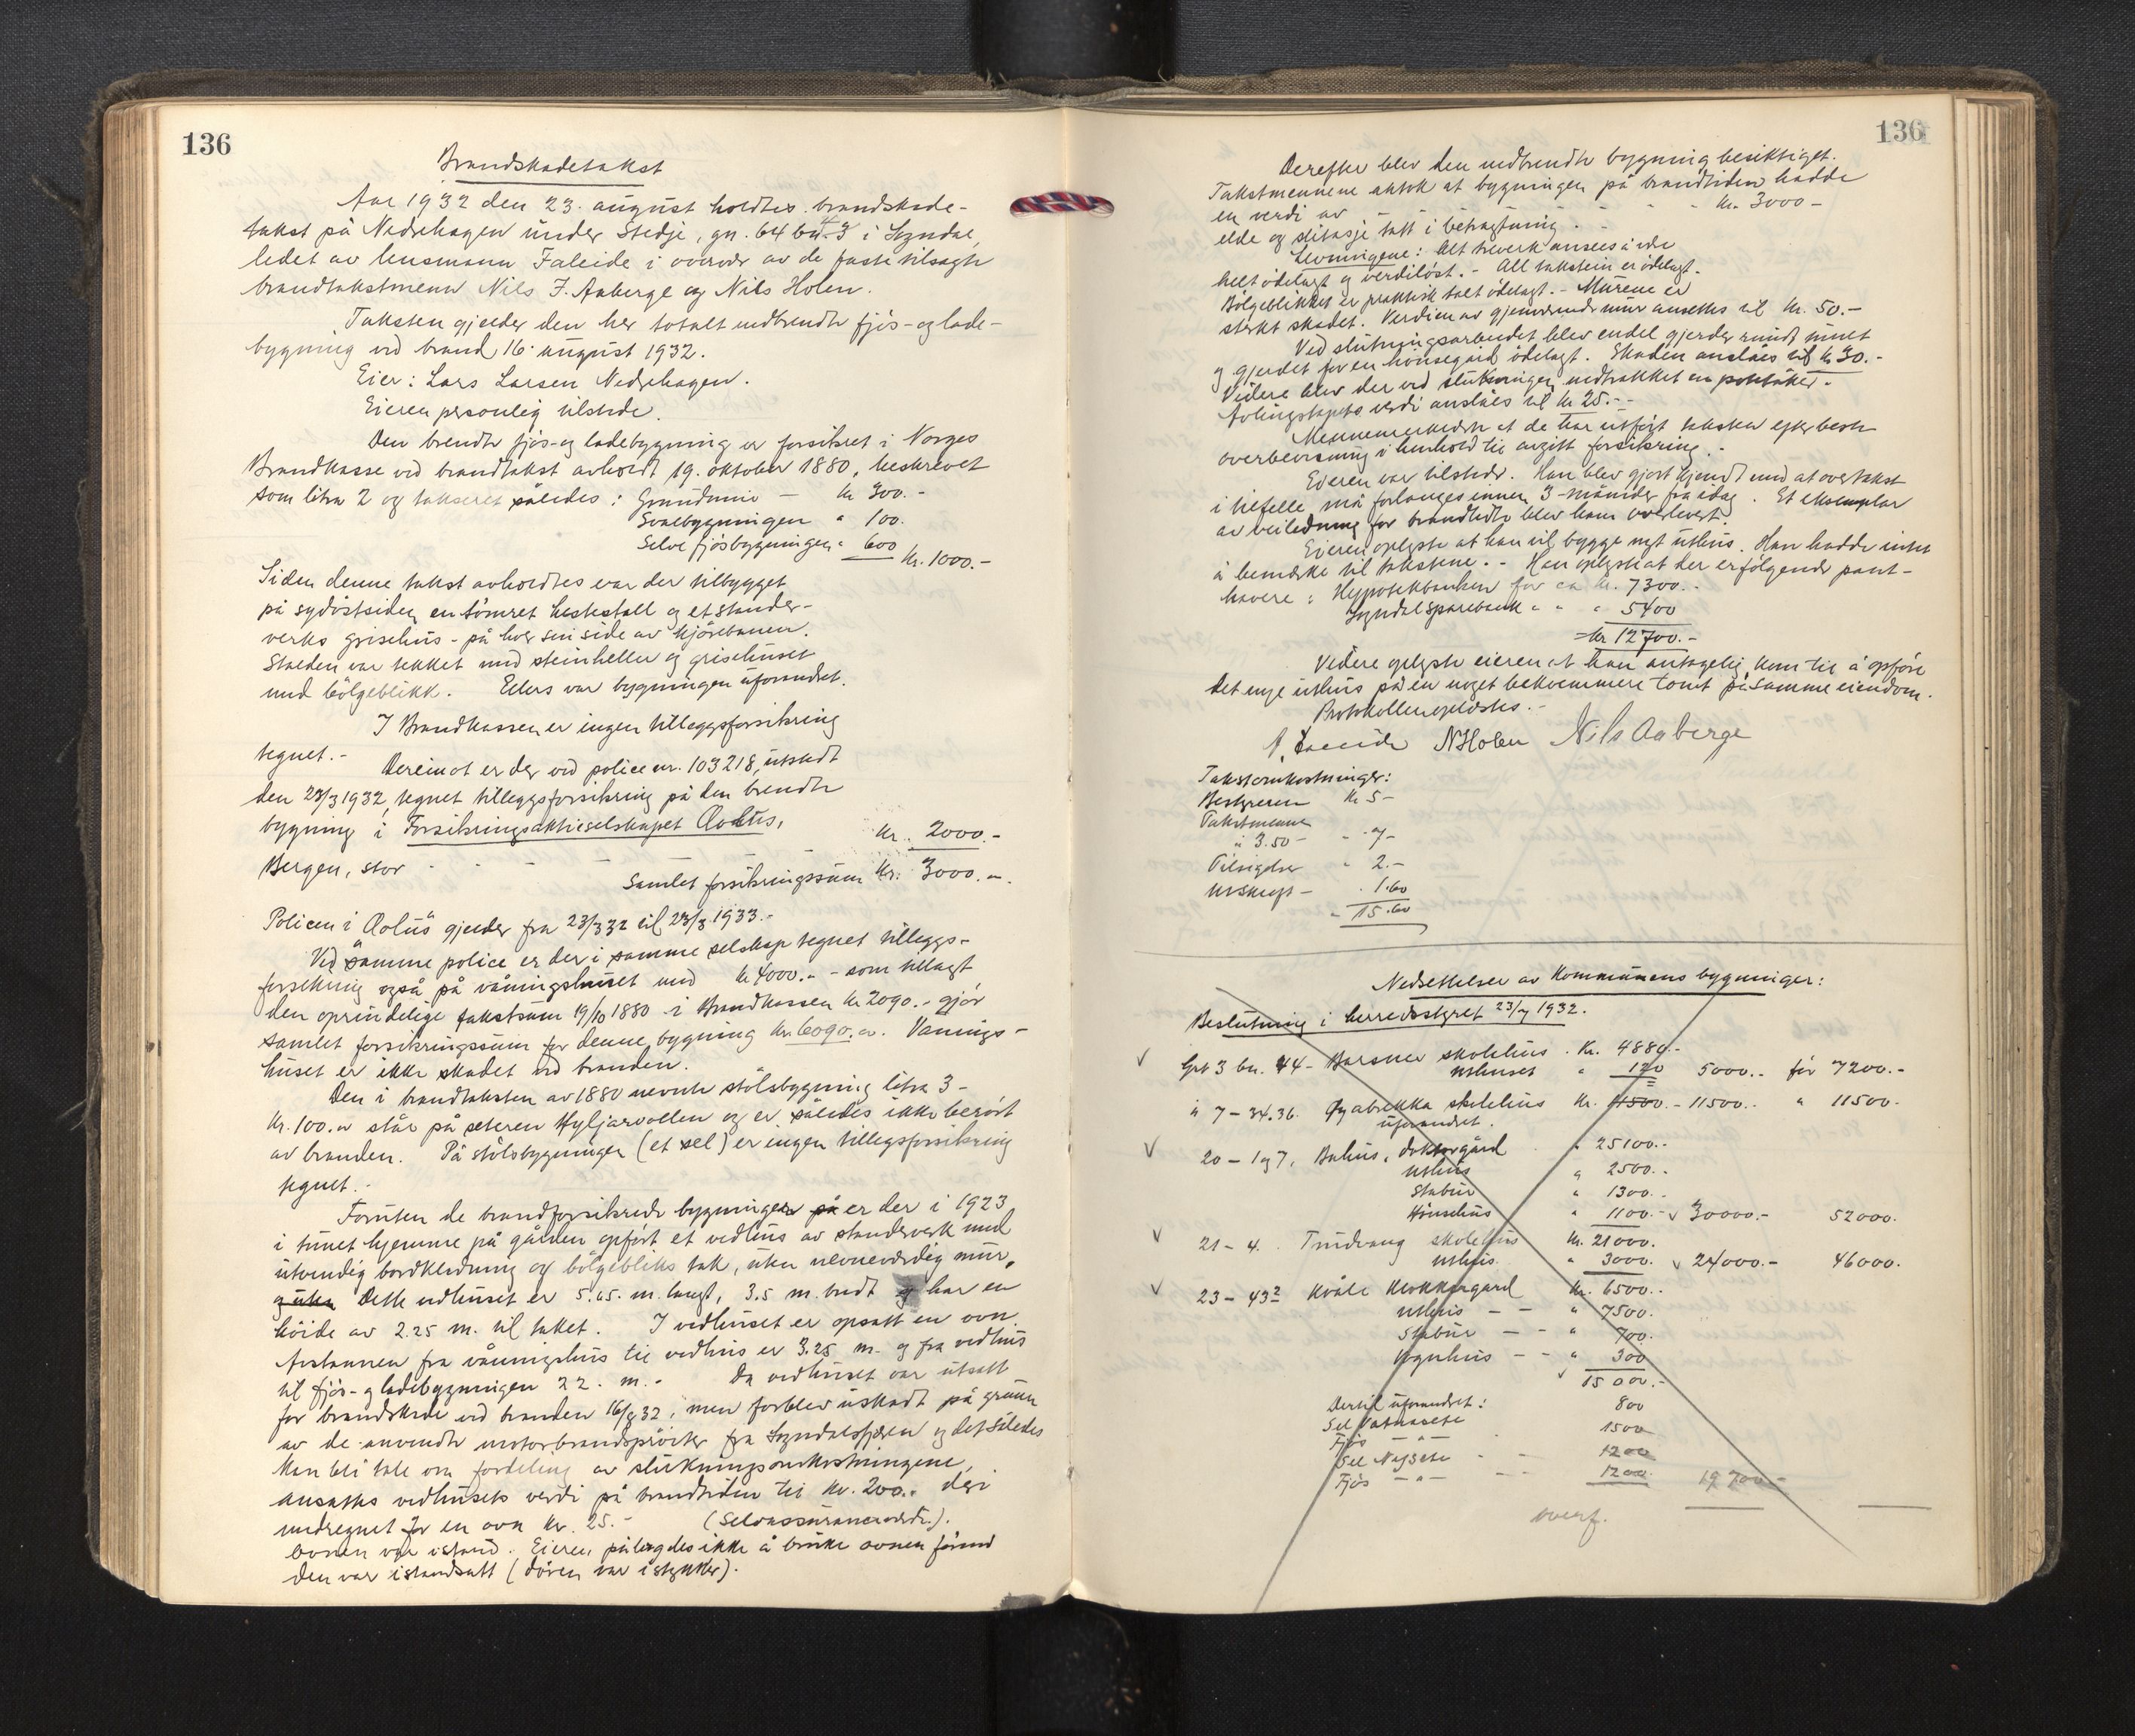 136
Brandskadetakst
Aar 1932 den 23. august holdtes brandskade-
takst på Nedrehagen under Stedje, gn. 64 bn. 3 i Sogndal,
ledet av lensmann Faleide i overvær av de faste tilsagte
brandtakstmenn Nils J. Aaberge og Nils Holen.
Taksten gjelder den her totalt nedbrendte fjøs- og lade-
bygning ved brand 16. august 1932.
Eier: Lars Larsen Nedrehagen.
Eieren personlig tilstede.
Den brendte fjøs- og ladebygning er forsikret i Norges
Brandkasse ved brandtakst avholdt 19. oktober 1880, beskrevet
som litra 2 og taksert således: Grundmur - kr 300.-
Svalebygningen " 100.
Selve fjøsbygningen " 600 Kr. 1000.-
Siden denne takst avholdtes var der tilbygget
på sydøstsiden en tømret hestestall og et stender-
verks grisehus - på hver sin side av kjørebanen.
Stallen var tekket med steinheller og grisehuset
med bølgeblikk. Ellers var bygningen uforandret.
I Brandkassen er ingen tilleggsforsikring
tegnet.- Derimot er der ved police nr. 103218, utstedt
den 23/3 1932, tegnet tilleggsforsikring på den brendte
bygning i Forsikringsaktieselskapet Aolus,
Bergen, stor - - - - kr. 2000.-
Samlet forsikringssum Kr. 3000.-
Policen i Aolus gjelder fra 23/3 32 til 23/3 1933.-
Ved samme police er der i samme selskap tegnet tilleggs-
forsikring også på våningshuset med kr 4000.- - som tillagt
den oprindelige takstsum 19/10 1880 i Brandkassen kr 2090.- gjør
samlet forsikringssum for denne bygning kr. 6090.-. Vånings-
huset er ikke skadet ved branden.
Den i brandtaksten av 1880 nevnte stølsbygning litra 3 -
Kr. 100.- står på seteren Hyljarvollen og er således ikke berørt
av branden. På stølsbygningen (et sel) er ingen tilleggsforsikring
tegnet.-
Foruten de brandforsikrede bygninger på er der i 1923
i tunet hjemme på gården opført et vedhus av stenderverk med
utvendig bordkledning og bølgebliks tak, uten nevneverdig mur,
og uten Dette vedhuset er 5.65 m. langt, 3.5 m. bredt og har en
høide av 2.25 m. til taket. I vedhuset er opsatt en ovn.
Avstanden fra våningshus til vedhus er 3.25 m. og fra vedhus
til fjøs- og ladebygningen 22. m.- Da vedhuset var utsatt
for brandskade ved branden 16/8 32, men forblev uskadt på grunn
av de anvendte motorbrandsprøiter fra Sogndalsfjøren og det således
kan bli tale om fordeling av slukningsomkostningene,
ansattes vedhusets verdi på brandtiden til kr. 200.- deri
medregnet for en ovn kr. 25.- (Selvassuranceverdi).
Ovnen var istand. Eieren pålagdes ikke å bruke ovnen førend
den var istandsatt (døren var istykker).
136
Derefter blev den nedbrendte bygning besiktiget.
Takstmennene antok at bygningen på brandtiden hadde
en verdi av - - - - kr. 3000-
elde og slitasje tatt i betragtning.
Levningene: Alt treverk ansees å være
helt ødelagt og verdiløst.- All takstein er ødelagt.
Bølgeblikket er praktisk talt ødelagt.- Murene er
sterkt skadet. Verdien av gjenværende mur ansettes til kr. 50.-
Ved slukningsarbeidet blev endel gjerder rundt tunet
og gjerdet for en hønsegård ødelagt. Skaden anslåes til kr 30.-
Videre blev der ved slukningen nedtrakket en potetåker.-
Avlingstapets verdi anslåes til kr 25.--
Mennene erklærte at de har utført taksten efter beste
overbevisning i henhold til avgitt forsikring.-
Eieren var tilstede. Han blev gjort kjendt med at overtakst
i tilfelle må forlanges innen 3-måneder fra idag. Et eksemplar
av veiledning for brandlidte blev ham overlevert.
Eieren oplyste at han vil bygge nyt uthus. Han hadde intet
å bemerke til takstene.- Han oplyste at der er følgende pant-
havere: Hypotekbanken for ca kr. 7300.-
Sogndal sparebank " " " 5400
= kr 12700.-
Videre oplyste eieren at han antagelig kom til å opføre
det nye uthus på en noget bekvemmere tomt på samme eiendom.
Protokollen oplestes.-
Faleide N Holen Nils Aaberge
Takstomkostninger:
Bestyreren kr 5-
Takstmenn
à 3.50 - " 7-
Tilsigelse " 2.-
Utskrift - 1.60
" 15.60
Nedsettelser av Kommunens bygninger:
Beslutning i herredsstyret 23/7 1932.
Gn 3 bn. 44 - Barsnes skolehus. Kr. 4880.-
uthuset " 120 5000.- før 7200.-
" 7 - 34.36. skolehus Kr. 11500.- 11500.- " 11500.-
uforandret.
20 - 1 og 7. Bahus, doktorgård " 25100.-
Uthus " 2500.-
Stabur " 1300.-
Hønsehus " 1100.- 30000.- 52000.
21 - 4. Trudvang skolehus kr. 21000.
Uthus. " 3000. 24000.- 46000.
23 - 43² Kvåle Klokkergard kr. 6500.-
Uthus - - " 7500.
Stabur - - " 700.
Vognhus - - " 300
15000.-
Dertil uforandret: 800
Sel Vatnasete 1500
Fjøs - " -
Sel Nysete - - 1200
Fjøs - " - - - 1200. 19700.-
overf.